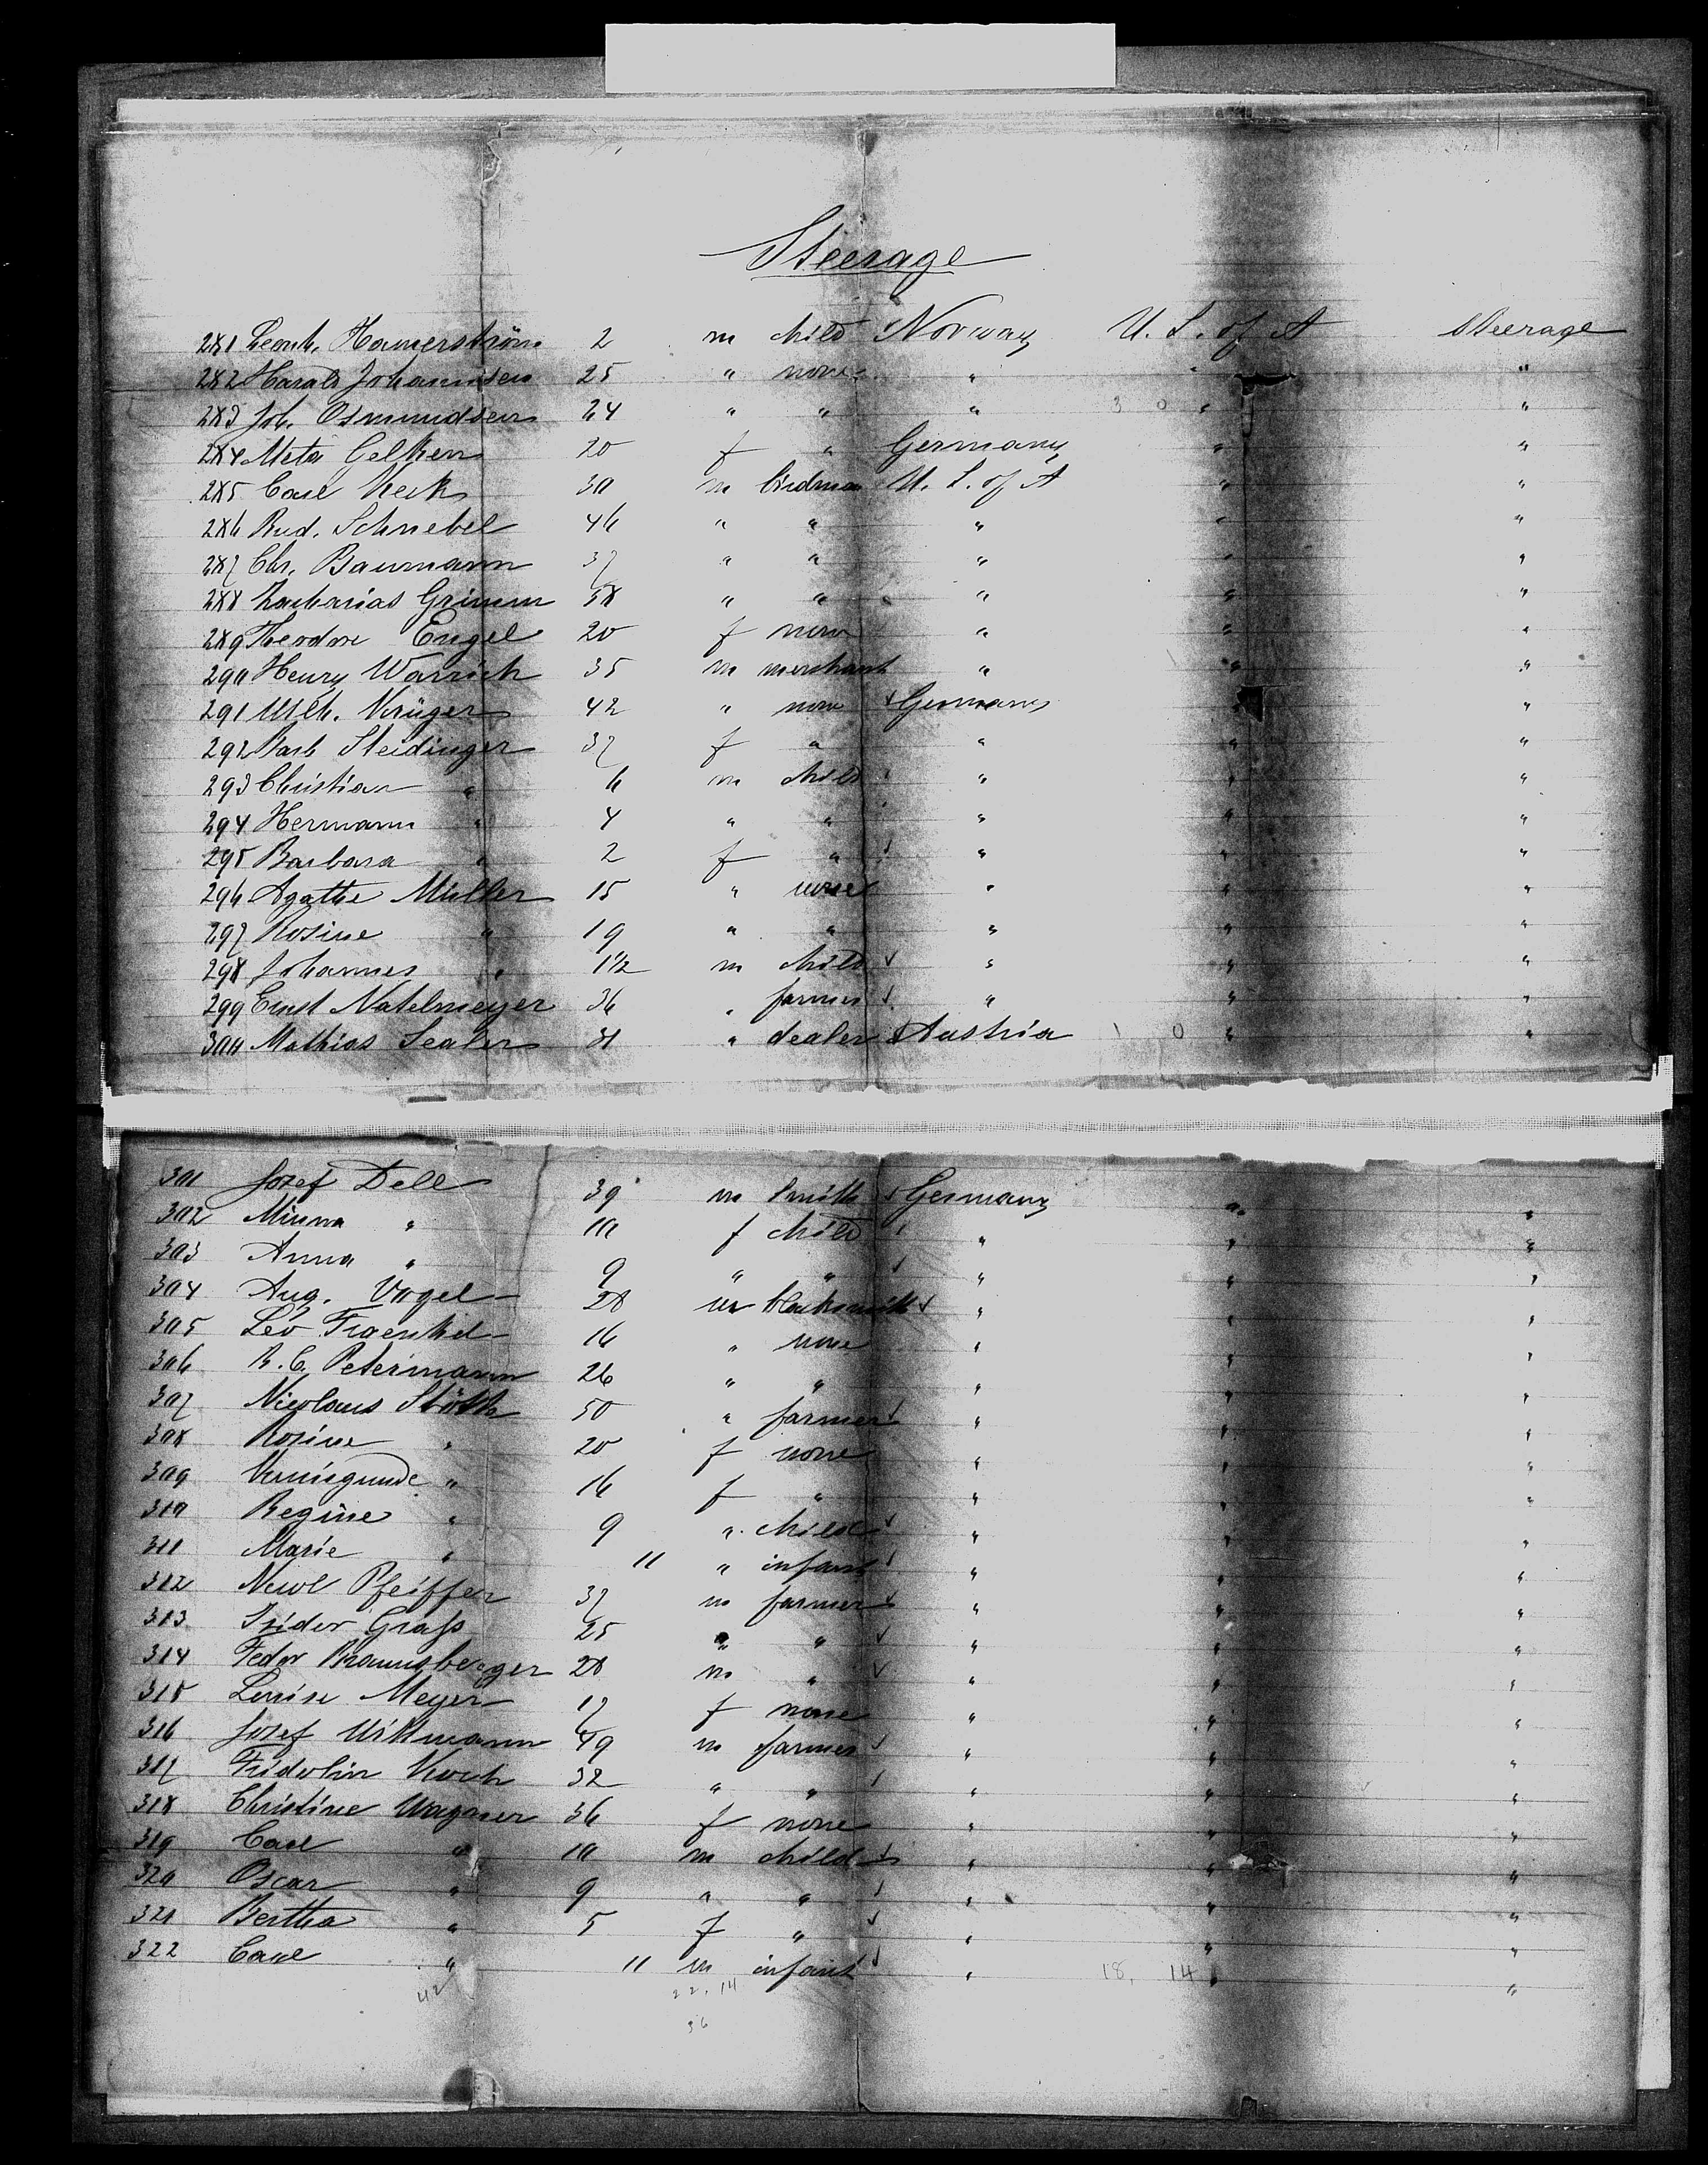 Steerage
281 Leonh. Hamerström 2 m child Norway U. S. of A Steerage
282 Harald Johannsen 25 " none " " "
283 Joh. Osmundsen 24 " " " 3 0 " "
284 Meta Gelken 20 f " Germany " "
285 Carl Keck 30 m birdman U. S. of A " "
286 Rud. Schnebel 46 " " " " "
287 Chr. Baumann 37 " " " " "
288 Zacharias Grimm 58 " " " " "
289 Theodore Engel 20 f none " " "
290 Henry Warrich 35 m merchant " " "
291 Wilh. Krüger 42 " none Germany " "
292 Barb Steidinger 37 f " " " "
293 Christian " 6 m child " " "
294 Hermann " 4 " " " " "
295 Barbara " 2 f " " " "
296 Agathe Müller 15 " none " " "
297 Rosine " 19 " " " " "
298 Johannes " 1 1/2 m child " " "
299 Ernst Natelmeyer 36 " farmer " " "
300 Mathias Sealer " dealer Austria 1 0 " "
301 Josef Dell 39 m Smith Germany " "
302 Minna " 10 f child " " "
303 Anna " 9 " " " " "
304 Aug. Vogel 28 m blacksmith " " "
305 Leo Fraenkel 16 " none " " "
306 R. C. Petermann 26 " " " " "
307 Nicolaus Stöth 50 " farmer " " "
308 Rosine " 20 f none " " "
309 Kunigunde " 16 f " " " "
310 Regine " 9 " child " " "
311 Marie " 11 " infant " " "
312 Nicol Pfeiffer 37 m farmer " " "
313 Isidor Grafs 25 " " " " "
314 Fedor Braunsberger 28 m " " " "
315 Louise Meyer 17 f none " " "
316 Josef Wittmann 49 m farmer " " "
317 Fridolin Koch 32 " " " " "
318 Christine Wagner 36 f none " " "
319 Carl " 10 m child " " "
320 Oscar " 9 " " " " "
321 Bertha " 5 f " " " "
322 Carl " 11 m infant " 18, 14 " "
42 22, 14
36